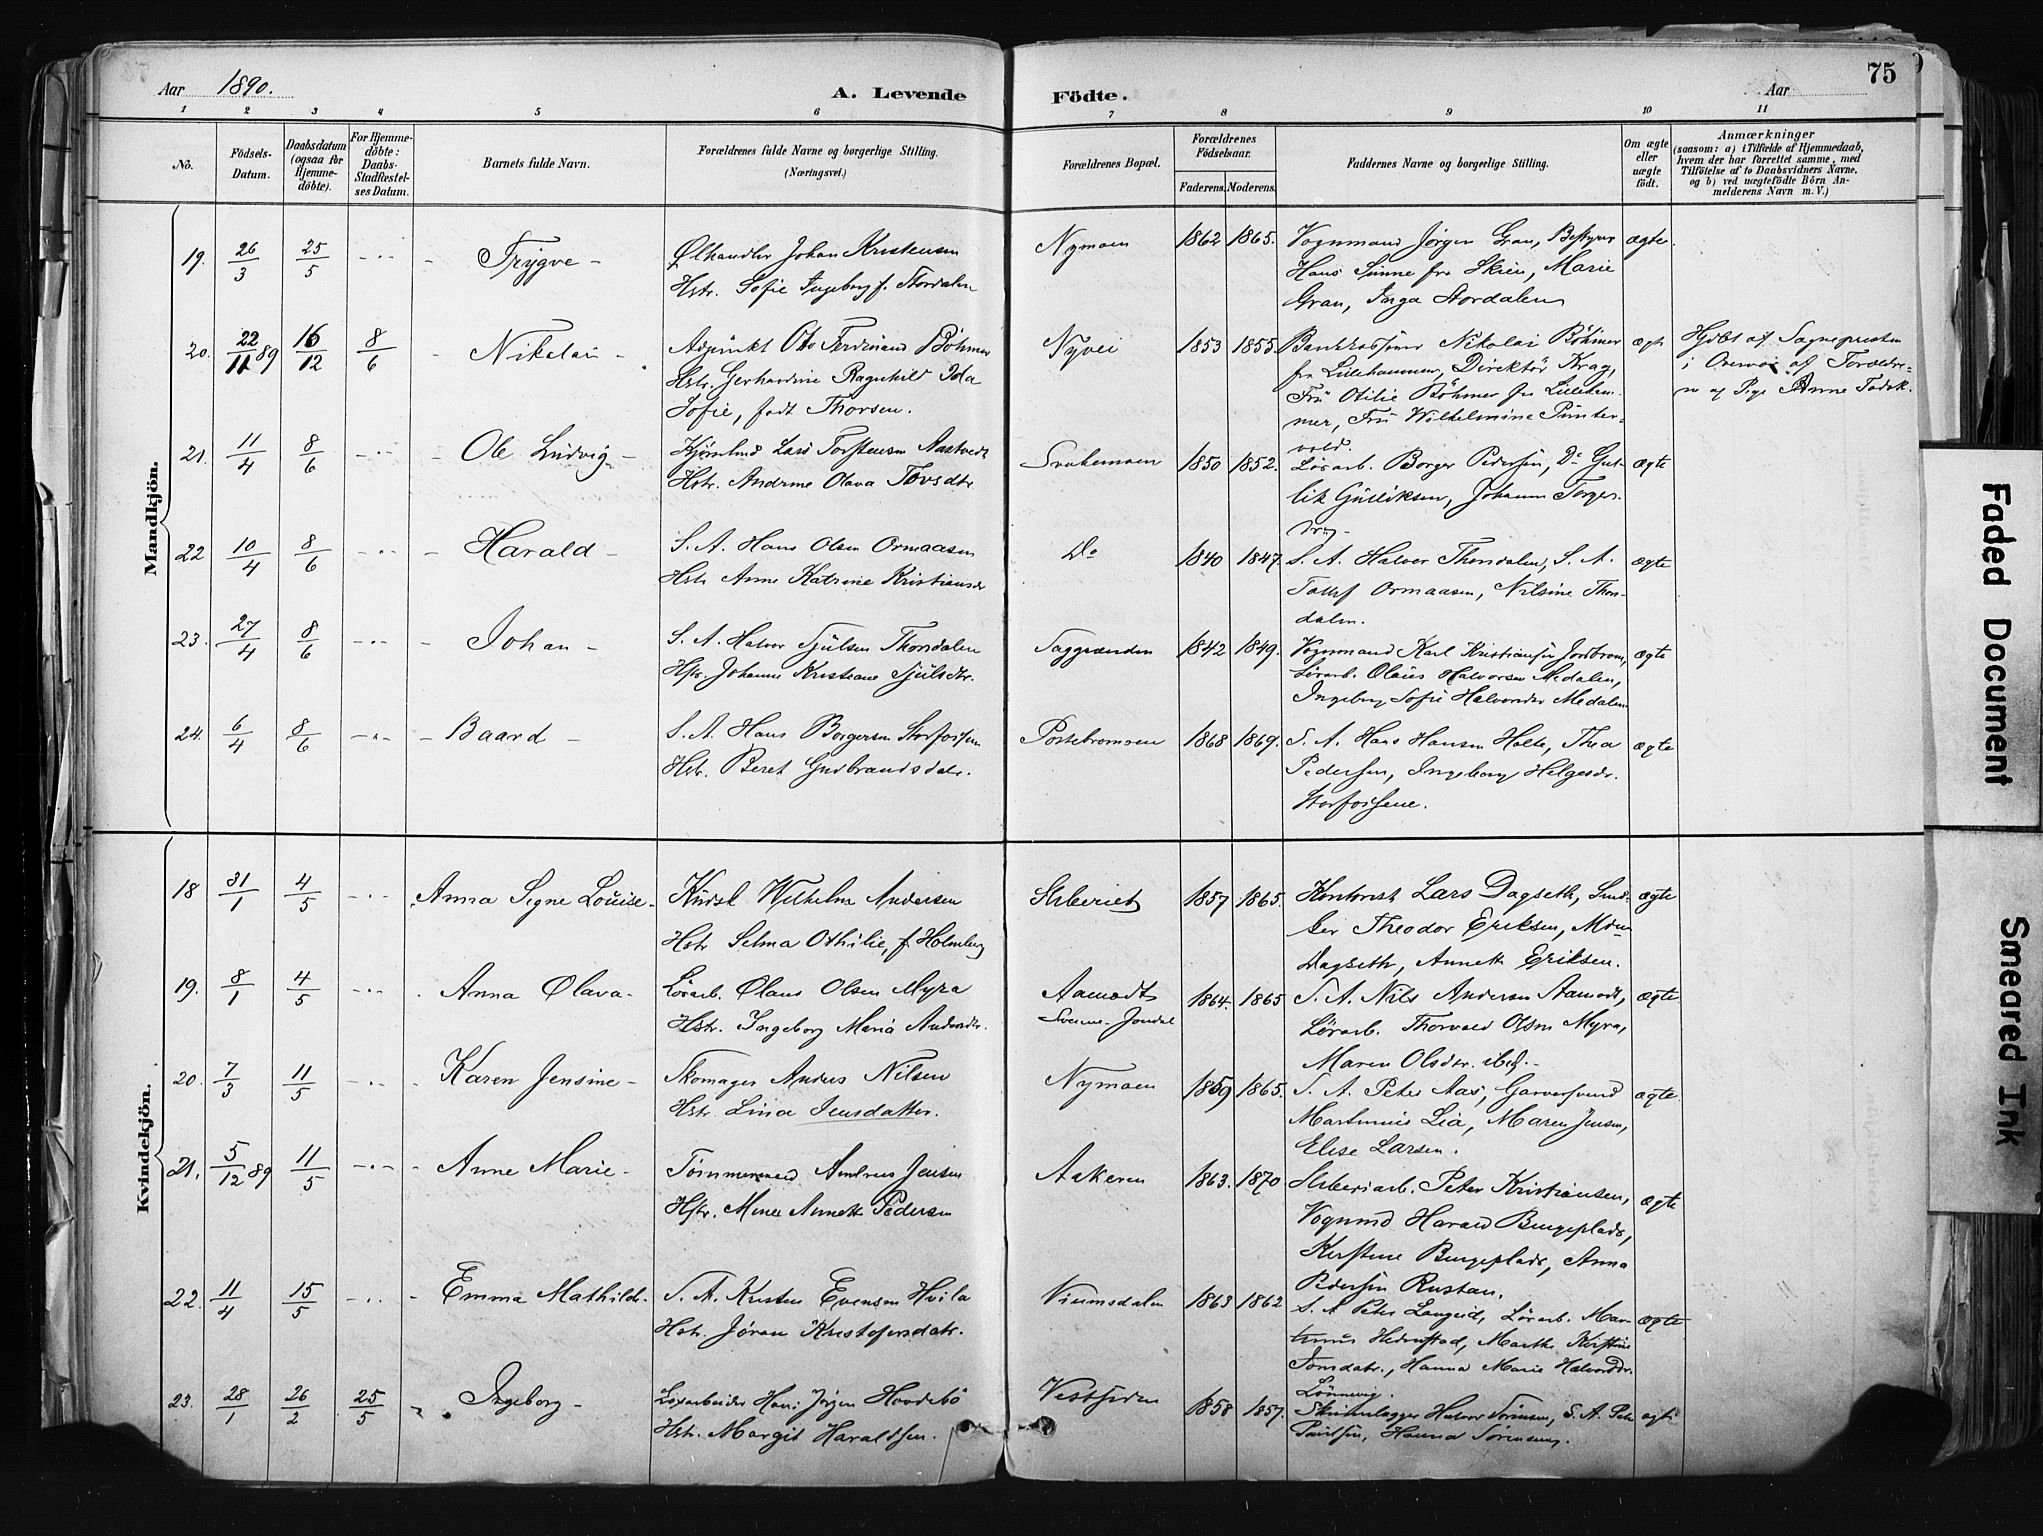 Aar 1890.
A. Levende Födte.
Aar
75
1 2 3 4 5 6 7 8 9 10 11
No.
Födsels-Datum.
Daabsdatum (ogsaa for Hjemme-döbte).
For Hjemme-döbte: Daabs-Stadfestel-ses Datum.
Barnets fulde Navn.
Forældrenes fulde Navne og borgerlige Stilling. (Næringsvei.)
Forældrenes Bopæl.
Forældrenes Födselsaar.
Faderens. Moderens.
Faddernes Navne og borgerlige Stilling.
Om ægte eller uægte födt.
Anmærkninger
(saasom: a) i Tilfælde af Hjemmedaab,
hvem der har forrettet samme, med
Tilföielse af to Daabsvidners Navne,
og b) ved uægtefödte Börn An-
melderens Navn m. V.)
Mandkjön.
19. 26/3 25/5 Trygve Nymoen 1862 1865. ægte
Ølhandler Johan Kristensen
Hstr. Sofie Ingeborg f. Stordalen
Vognmand Jørgen Gran, Bestyrer
Hans Sinne fra Skien, Marie
Gran, Inga Stordalen
20. 22/11 89 16/12 8/6 Nikolai Nyvei 1853 1855. ægte
Adjunkt Otto Ferdinand Böhmer
Hstr. Gerhardine Ragnhild Ida
Sofie, født Thorsen.
Nikolai Böhmer
fra Lillehammer, Direktör Krag,
Fru Otilie Böhmer fra Lilleham-
mer, Fru Wilhelmine Pinter-
vold.
Hjdbt af Sognepresten
i Overvær af Forældre-
ne og Pige Anne
21. 11/4 8/6 Ole Ludvig 1850 1852. ægte
Lars Torstensen Aastvedt
Hstr. Andrine Olava Tovsdtr.
Lösarb. Borger Pedersen, Do Gut-
lik Gulliksen, Johanne Torger-
22 10/4 8/6 Harald Do 1840 1847. ægte
S. A. Hans Olsen Ormaasen
Hstr Anne Katrine Kristiansdr
S. A. Halvor Thordalen, S. A.
Ormaasen, Nilsine Thor-
dalen.
23. 27/4 8/6 Johan Saggrenden 1842 1849. ægte
S. A. Halvor Tjulsen Thordalen
Hstr. Johanne Kristiane Tjulsdtr.
Vognmand Karl Kristiansen
Lösarb. Olaus Halvorsen Medalen,
Ingeborg Sofie Halvorsdr Medalen
24. 6/4 8/6 Baard 1868 1869. ægte
S. A. Hans Borgersen Storfossen
Hstr. Beret Gudbrandsdatr.
S. A. Hans Hansen Holte, Thea
Pedersen, Ingeborg Helgesdr.
Storfossene.
Kvindekjön.
18 31/1 4/5 Anna Signe Louise 1857 1865. ægte
Kudsk Wilhelm Andersen
Hstr Selma Othilie, f. Holmberg
Kontorist Lars Dagseth, Sned-
ker Theodor Eriksen,
Dagseth, Annette Eriksen.
19. 8/1 4/5 Anna Olava Aamodt 1864. 1865 ægte
Lösarb. Olaus Olsen Myra
Hstr. Ingeborg Maria Andersdtr.
S. A. Nils Andersen Aamodt,
Lösarb. Thorvald Olsen Myra,
Maren Olsdtr. ibid.
20. 7/3 11/5 Karen Jensine Nymoen 1859 1865. ægte
Skomager Anders Nilsen
Hstr. Lina Jensdatter.
S. A. Peter Aas, Garversvend
Martinius Lia, Maren Jensen,
Elise Larsen.
21. 5/12 89 11/5 Anne Marie Aakeren 1863. 1870. ægte
Tömmermand Andreas Jensen
Hstr. Mina Annette Pedersen
Peter Kristiansen,
Vognmd Harald Bergeplads,
Kirstine Bergeplads, Anna
Pedersen Rustan.
22. 11/4 15/5 Emma Mathilde 1863 1862 ægte
S. A. Kristen Evensen Hvila
Hstr. Jøran Kristofersdatr.
S. A. Peter Langeid, Lösarb. Mar-
tinius Hedenstad, Marthe Kirstine
Tomsdatr., Hanna Marie Halvorsdr.
23. 28/1 26/2 25/5 Ingeborg Vestsiden 1858 1857. ægte
Lösarbeider Hans Jörgen Hovdebö
Hstr. Margit Haraldsen.
Halvor Sörensen, S. A. Peter
Paulsen, Hanna Sörensen.
Faded Document
Smeared Ink